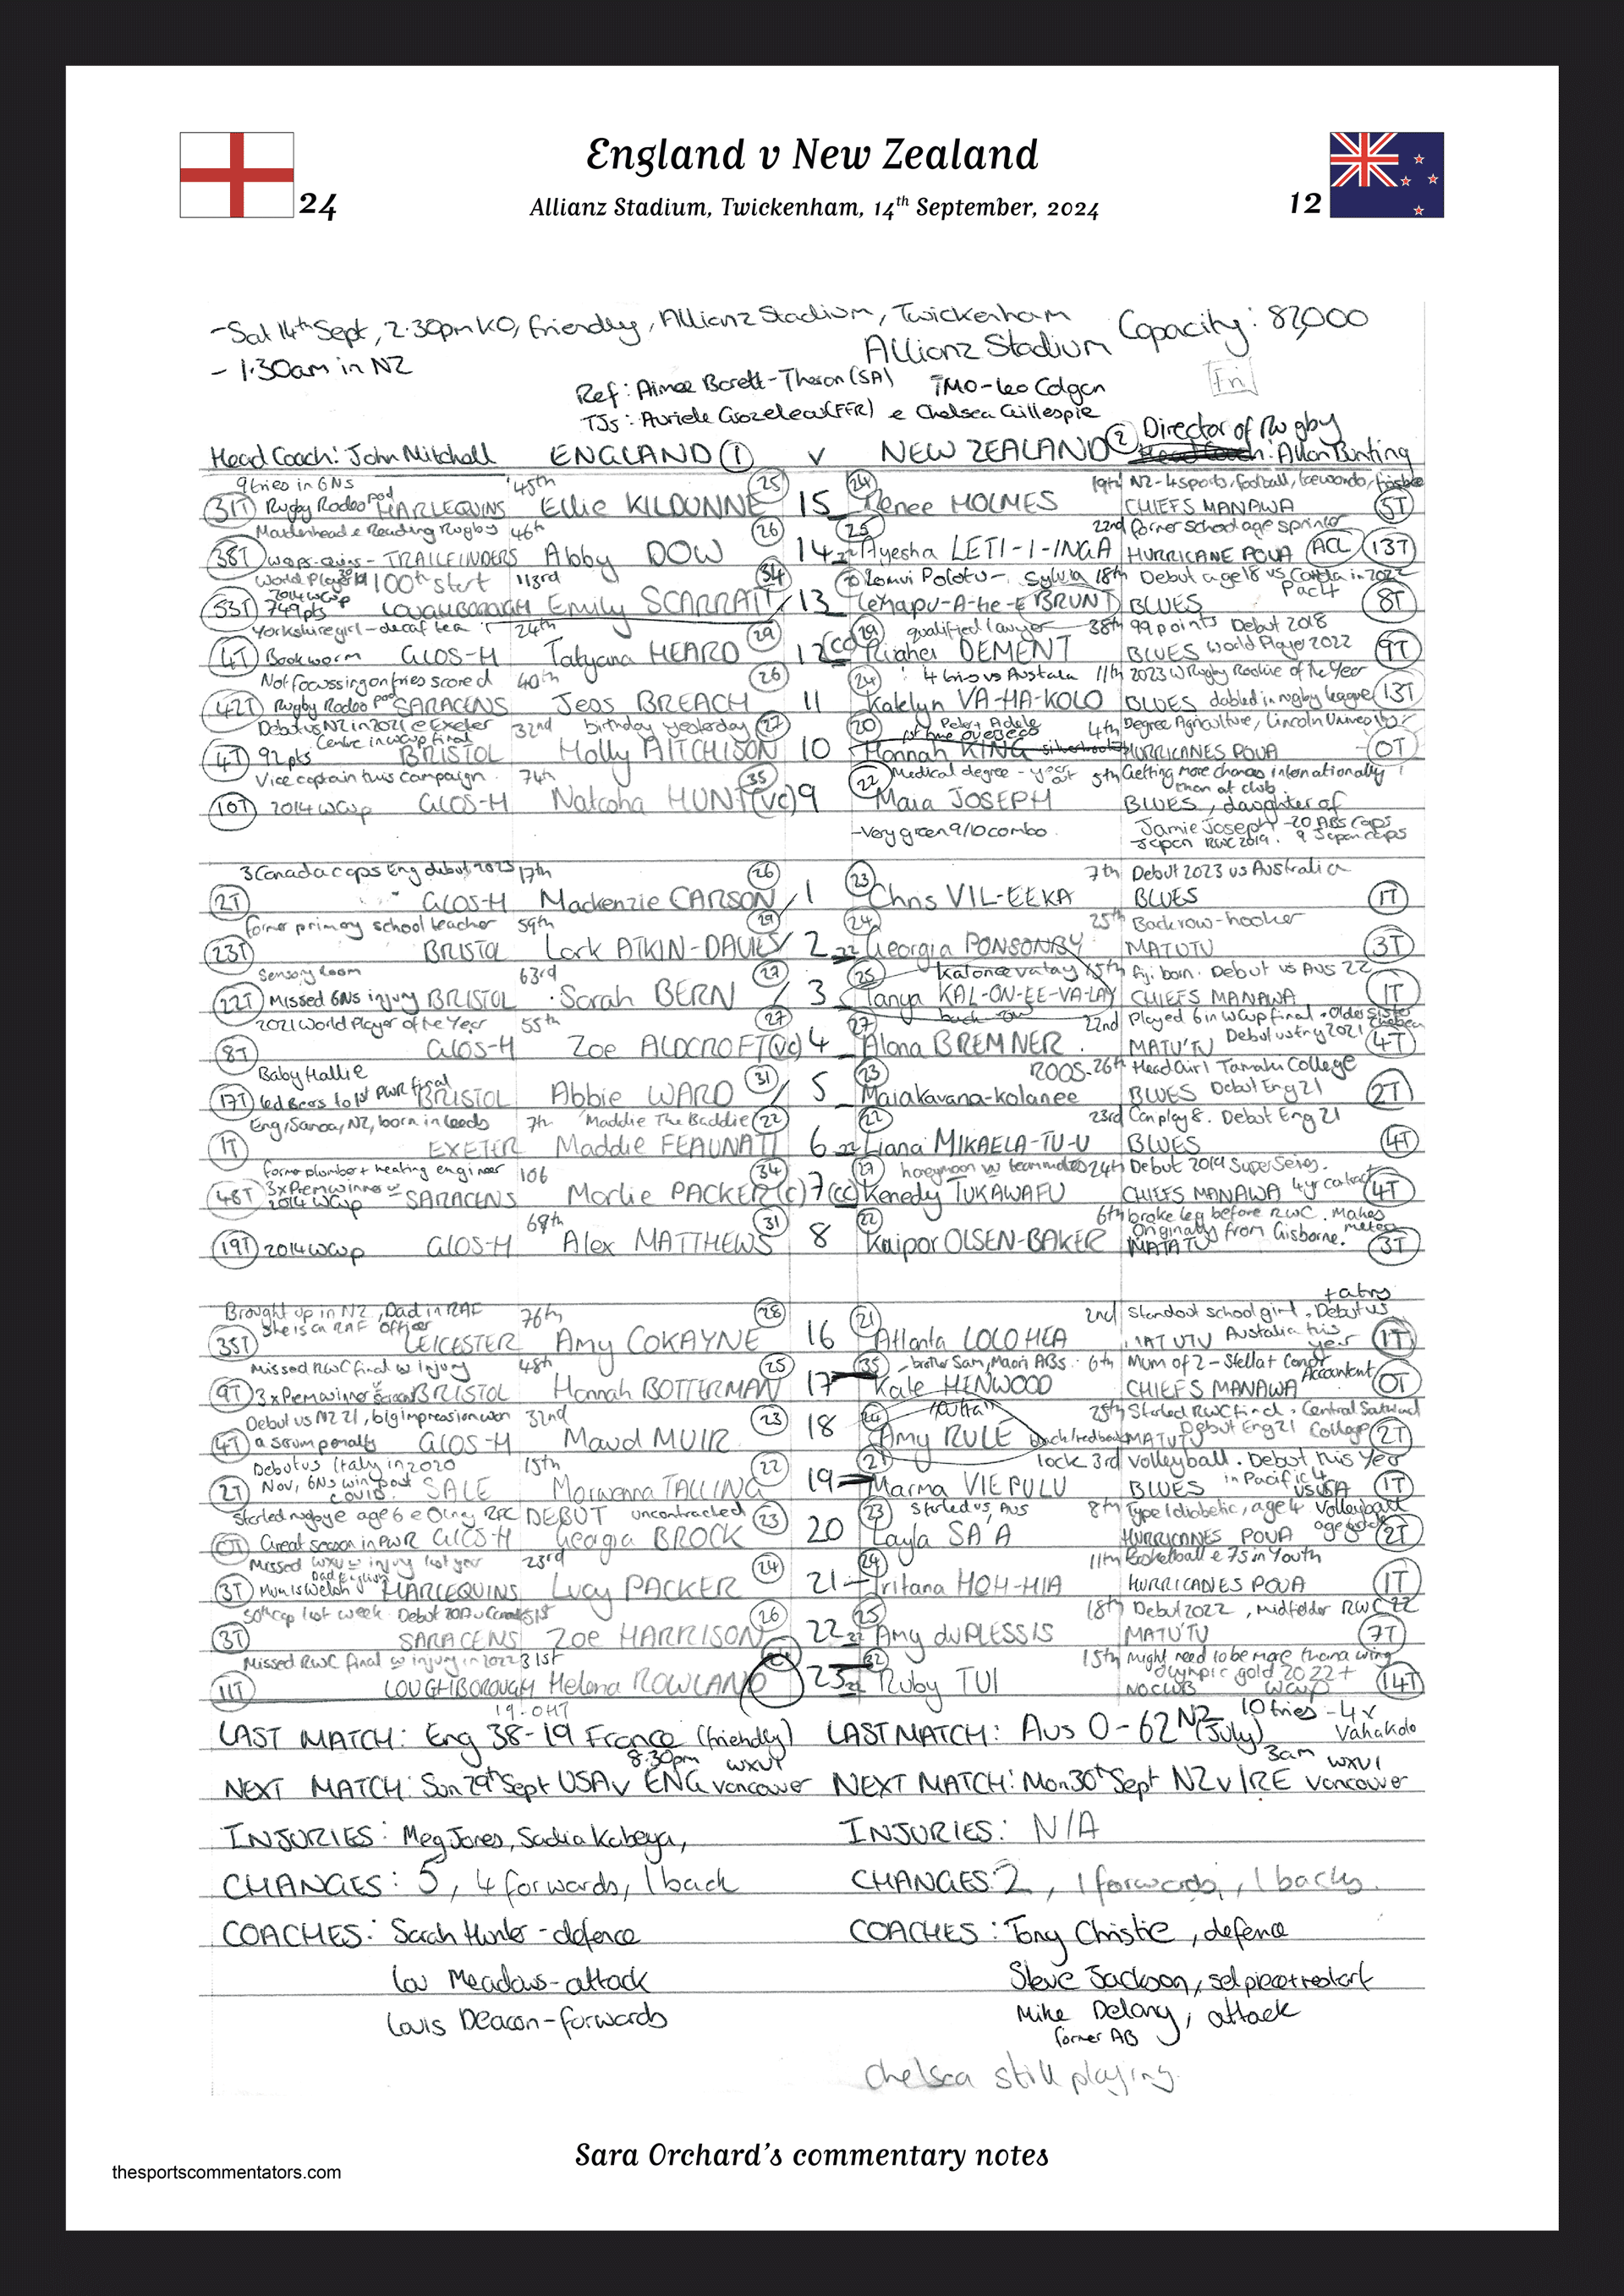 England v New Zealand
24
Allianz Stadium, Twickenham, 14th September, 2024
12
-Sat 14th Sept, 2.30pm KO, friendly, Allianz Stadium, Twickenham
Capacity: 82,000
Allianz Stadium
- 1.30am in NZ
Fri
Ref: Aimee Barett-Theron (SA) TMO-Leo Colgan
TJs: Auriele Grozeleau (FFR) e Chelsea Gillespie
Director of Rugby
Head Coach: John Mitchell ENGLAND 1 v NEW ZEALAND 2 Head Coach: Allan Bunting
9 tries in 6Ns 45th 25 24 19th NZ-4 sports, football, taewondo, frisbee
31T Rugby Rodeo pod HARLEQUINS Ellie KILDUNNE 15 Renee HOLMES CHIEFS MANAWA 5T
Maidenhead e Reading Rugby 46th 26 25 22nd former school age sprinter
38T wasps-quins-TRAILFINDERS Abby DOW 14 Ayesha LETI-I-INGA HURRICANE POUA ACL 13T
World Player 2019 100th start 113rd 34 Sylvia 18th Debut age 18 vs Canada in 2022 Pac4
53T 2014 WCup 749pts LOUGHBOROUGH Emily SCARRATT 13 BRUNT BLUES 8T
Yorkshire girl-decaf tea 24th 29 29 qualified lawyer 38th 99 points Debut 2018
4T Bookworm GLOS-H Tatyana HEARD 12 (CC) Ruahei DEMENT BLUES World Player 2022 9T
Not focussing on tries scored 40th 26 24 4 tries vs Australia 11th 2023 W Rugby Rookie of the Year
42T Rugby Rodeo pod SARACENS Jess BREACH 11 Katelyn VA-HA-KOLO BLUES dabbled in rugby league 13T
Debut vs NZ in 2021 e Exeter 32nd birthday yesterday 27 20 Peter + Adele 1st time overseas 4th Degree Agriculture, Lincoln University
4T 92pts Centre in WCup final BRISTOL Holly AITCHISON 10 Hannah KING HURRICANES POUA 0T
Vice captain this campaign 74th 35 22 Medical degree - year out 5th Getting more chances internationally than at club
10T 2014 WCup GLOS-H Natasha HUNT (VC) 9 Maia JOSEPH BLUES, daughter of
-Very green 9/10 combo Jamie Joseph -20 ABs Caps
Japan RWC 2019. 9 Japan caps
3 Canada caps Eng debut 2023 17th 26 23 7th Debut 2023 vs Australia
2T GLOS-H Mackenzie CARSON 1 Chris VIL-EEKA BLUES 1T
former primary school teacher 59th 29 24 25th Backrow-hooker
23T BRISTOL Lark ATKIN-DAVIES 2 Georgia PONSONBY MATUTU 3T
Sensory room 63rd 27 25 Kalounivatay 15th Fiji born. Debut vs Aus 22
22T Missed 6Ns injury BRISTOL Sarah BERN 3 Tanya KAL-ON-EE-VA-LAY CHIEFS MANAWA 1T
back row
2021 World Player of the Year 55th 27 27 22nd Played 6 in WCup final. Older sister Chelsea
8T GLOS-H Zoe ALDCROFT (VC) 4 Alana BREMNER MATU'TU Debut vs Eng 2021 4T
Baby Hallie 31 23 ROOS. 26th Head Girl Tamaki College
17T led Bears to 1st PWR final BRISTOL Abbie WARD 5 Maiakawana-kolanee BLUES Debut Eng 21 2T
Eng, Samoa, NZ, born in Leeds 7th Maddie The Baddie 22 22 23rd Can play 8. Debut Eng 21
1T EXETER Maddie FEAUNATI 6 Liana MIKAELA-TU-U BLUES 4T
former plumber + heating engineer 106 34 27 honeymoon w teammates 24th Debut 2019 Super Series.
48T 3x Prem winner 2014 WCup SARACENS Marlie PACKER (C) 7 (CC) Kenedy TUKAWAFU CHIEFS MANAWA 4yr contract 4T
69th 31 22 6th broke leg before RWC. Makes
Originally from Gisborne.
19T 2014 WCup GLOS-H Alex MATTHEWS 8 Kaipor OLSEN-BAKER MATATU 3T
+ a try
Brought up in NZ, Dad in RAF 76th 28 21 2nd Standout school girl. Debut vs
35T She is a RAF officer LEICESTER Amy COKAYNE 16 Atlanta LOLOHEA MATUTU Australia this year 1T
Missed RWC final w injury 48th 25 35 -brother Sam, Maori ABs. 6th Mum of 2 - Stella + Conor
9T 3x Prem winner BRISTOL Hannah BOTTERMAN 17 Kate HENWOOD CHIEFS MANAWA Accountant 0T
Debut vs NZ 21, big impression won 32nd 23 24 25th Started RWC final. Central Southland
4T a scrum penalty GLOS-H Maud MUIR 18 Amy RULE MATUTU Debut Eng 21 College 2T
Debut vs Italy in 2020 15th 22 21 lock 3rd Volleyball. Debut this Year
2T Nov, 6Ns win post covid SALE Morwenna TALLING 19 Marma VIEPULU BLUES in Pacific 4 vs USA 1T
Started rugby e age 6 e Olney RFC DEBUT uncontracted 23 23 Started vs Aus 8th Type 1 diabetic, age 4 Volleyball
0T Great season in PWR GLOS-H Georgia BROCK 20 Layla SA'A HURRICANES POUA age grade 2T
Missed WXV w injury last year 23rd 24 29 11th Basketball e 7s in Youth
3T Mum is Welsh Dad English HARLEQUINS Lucy PACKER 21 Iritana HOH-HIA HURRICANES POUA 1T
50th cap last week. Debut 51st 26 25 18th Debut 2022, Midfielder RWC 22
3T SARACENS Zoe HARRISON 22 Amy du PLESSIS MATU'TU 7T
Missed RWC final w injury in 2022 31st 32 15th Might need to be more than a wing
Olympic gold 2022 + WCup
11T LOUGHBOROUGH Helena ROWLAND 23 Ruby TUI NO CLUB 14T
19-0HT 10 tries - 4x Vahakolo
LAST MATCH: Eng 38-19 France (friendly) LAST MATCH: Aus 0-62 NZ (July)
8.30pm WXV1 3am WXV1
NEXT MATCH: Sun 29th Sept USA v ENG Vancouver NEXT MATCH: Mon 30th Sept NZ v IRE Vancouver
INJURIES: Meg Jones, Sadia Kabeya, INJURIES: N/A
CHANGES: 5, 4 forwards, 1 back CHANGES: 2, 1 forwards, 1 backs.
COACHES: Sarah Hunter - defence COACHES: Tony Christie, defence
Lou Meadows-attack Steve Jackson, set piece+restart
Louis Deacon-forwards Mike Delany, attack
former AB
Chelsea still playing.
Sara Orchard's commentary notes
thesportscommentators.com